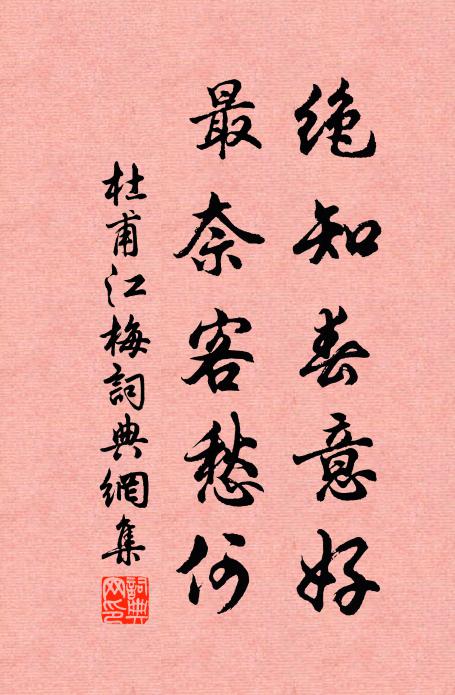 绝知春意好
最奈客愁何
杜甫江梅詞典網集
詞典网印